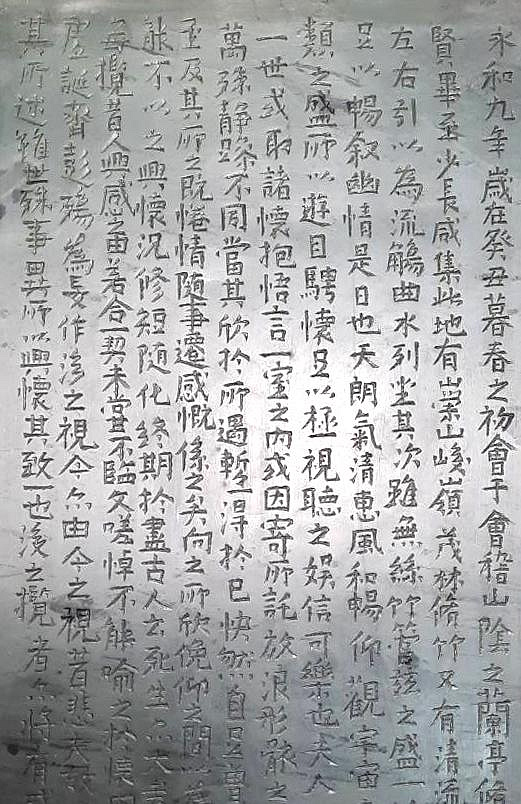 永和九年歲在癸丑暮春之初會于會稽山陰之蘭亭脩
賢畢至少長咸集此地有崇山峻嶺茂林脩竹又有清流
左右引以為流觴曲水列坐其次雖無絲竹管弦之盛一
足以暢敘幽情是日也天朗氣清惠風和暢仰觀宇宙
類之盛所以遊目騁懷足以極視聽之娛信可樂也夫人
一世或取諸懷抱悟言一室之內或因寄所託放浪形骸之
萬殊靜躁不同當其欣於所遇暫得於己快然自足曾
至及其所之既惓情隨事遷感慨係之矣向之所欣俛仰之間
能不以之興懷況修短隨化終期於盡古人云死生亦大
每攬昔人興感之由若合一契未嘗不臨文嗟悼不能喻之於懷
虛誕齊彭殤為妄作後之視今亦由今之視昔悲夫故
其所述雖世殊事異所以興懷其致一也後之攬者亦將有